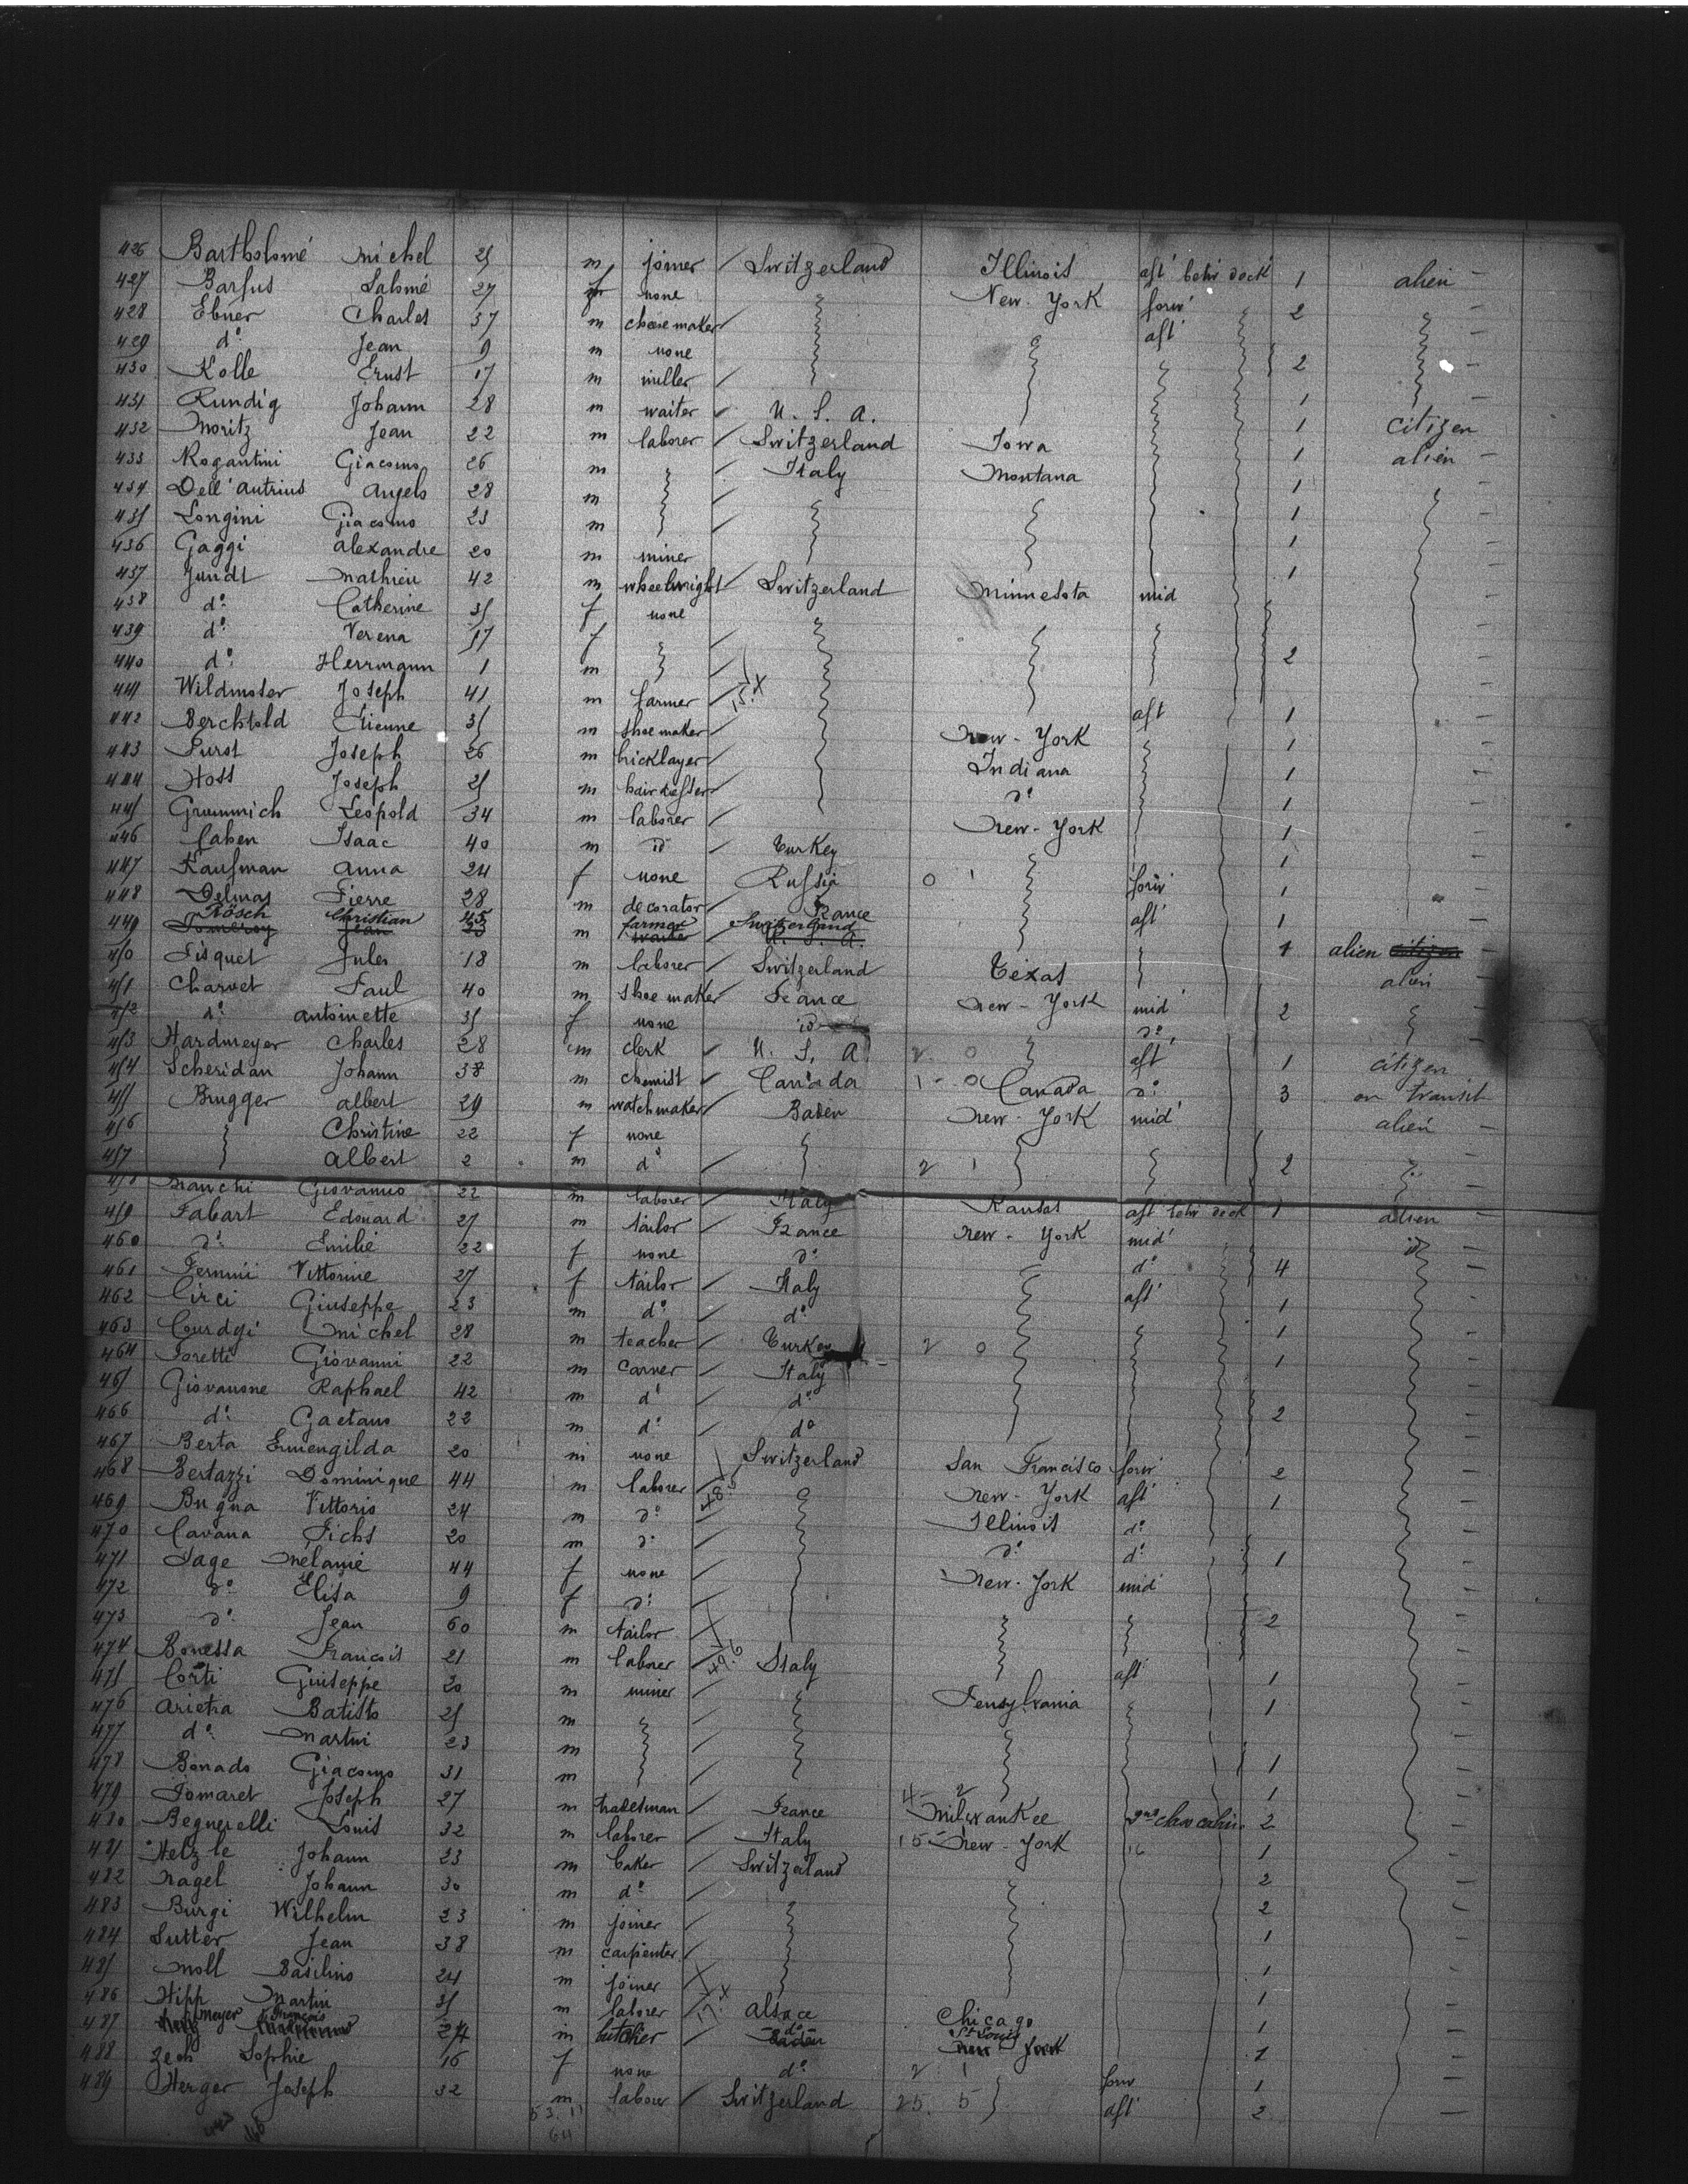 426 Bartholomé Michel 25 m joiner Switzerland Illinois aft betw deck 1 alien
427 Barfus Salomé 27 f none New-York forw 2
428 Ebner Charles 37 m cheesemaker aft
429 d° Jean 9 m none 2
430 Kolle Ernst 17 m miller 1
431 Rundig Johann 28 m waiter U.S.A. 1 citizen
432 Moritz Jean 22 m laborer Switzerland Iowa 1 alien
433 Rogantini Giacomo 26 m Italy Montana 1
434 Dell'Autrius Angelo 28 m 1
435 Longini Giacomo 23 m 1
436 Gaggi Alexandre 20 m miner 1
437 Jundt Mathieu 42 m wheelwright Switzerland Minnesota mid
438 d° Catherine 35 f none
439 d° Verena 17 f
440 d° Herrmann 1 m 2
441 Wildmoser Joseph 41 m farmer aft 1
442 Berchtold Etienne 35 m shoemaker New-York 1
443 Furst Joseph 26 m bricklayer Indiana 1
444 Hoss Joseph 25 m hairdesser d° 1
445 Grummich Leopold 34 m laborer New-York 1
446 Cahen Isaac 40 m id Turkey 1
447 Kaufman Anna 24 f none Russia 0 1 forw 1
448 Delmas Pierre 28 m decorator France aft 1
449 Rösch Christian 45 m farmer Switzerland 1 alien citizen
450 Fisquet Jules 18 m laborer Switzerland Texas alien
451 Charvet Paul 40 m shoe maker France New-York mid 2
452 d° Antoinette 35 f none id d°
453 Hardmeyer Charles 28 m clerk U.S.A. 2 0 aft 1 citizen
454 Scheridan Johann 38 m chemist Canada 1-0 Canada d° 3 on transit
455 Brugger Albert 29 m watchmaker Baden New-York mid alien
456 Christine 22 f none
457 Albert 2 m d° 2 1 2
458 Bianchi Giovanno 22 m laborer Italy Kansas aft betw deck 1 alien
459 Fabart Edouard 27 m tailor France New-York mid id
460 d° Emilie 22 f none d° d° 4
461 Fermini Vittorine 27 f tailor Italy aft 1
462 Circi Giuseppe 23 m d° d° 1
463 Courdgi Michel 28 m teacher Turkey 2 0 1
464 Foretti Giovanni 22 m carver Italy
465 Giovanone Raphael 42 m d° d° 2
466 d° Gaetano 22 m d° d°
467 Berta Ermengilda 20 m none Switzerland San Francisco forw 2
468 Bertazzi Dominique 44 m laborer New-York aft 1
469 Bugna Vittorio 24 m d° Illinois d°
470 Cavana Fichs 20 m d° d° d° 1
471 Page Mélanie 44 f none New-York mid
472 d° Elisa 9 f d° 2
473 d° Jean 60 m tailor
474 Bonessa François 21 m laborer Italy aft 1
475 Corti Guiseppe 20 m miner Pensylvania 1
476 Arietra Batisto 25 m
477 d° Martini 23 m 1
478 Bonado Giacomo 31 m 1
479 Tomaret Joseph 27 m tradesman France 4-2 Milwaukee 2nd class cabin 2
480 Begnerelli Louis 32 m laborer Italy 15 New-York 16 1
481 Helzle Johann 23 m baker Switzerland 2
482 Nagel Johann 30 m d° 2
483 Burgi Wilhelm 23 m joiner 1
484 Sutter Jean 38 m carpenter
485 Moll Basilino 24 m joiner 1
486 Hipp Martin 35 m laborer Alsace Chicago 1
487 Meyer François 24 m butcher d° St Louis 1
488 Zeoh Sophie 16 f none d° 2 1 forw 1
489 Herger Joseph 32 m laborer Switzerland 25 5 aft 2
53. 11
64